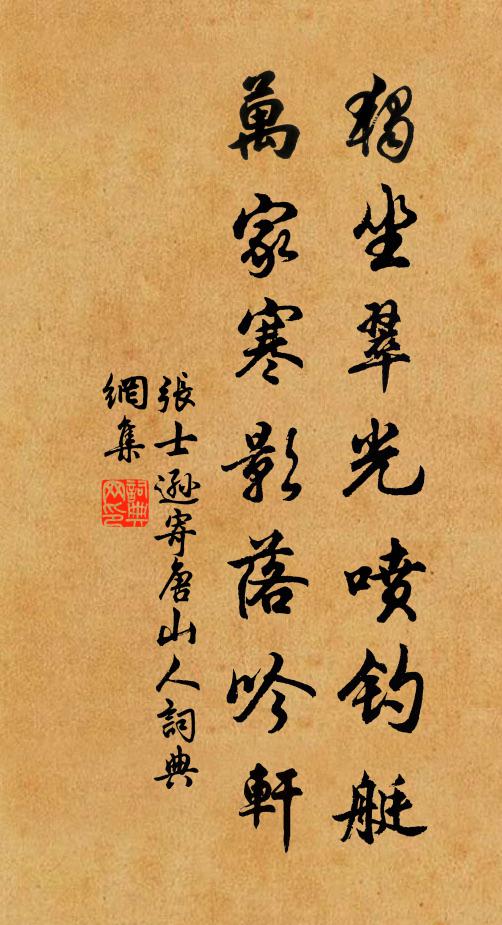 獨坐翠光噴釣艇
萬家寒影落吟軒
張士遜寄唐山人詞典
網集
詞典網印